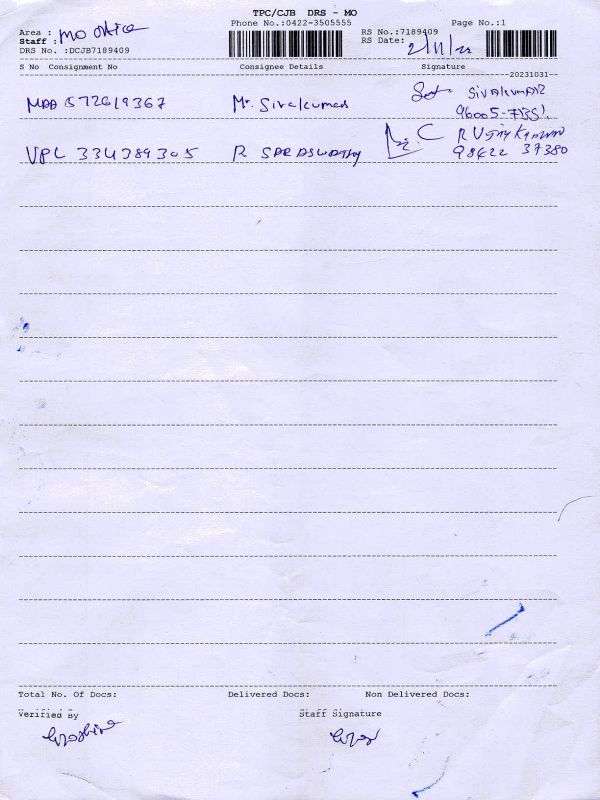 TPC/CJB DRS - MO
Phone No.:0422-3505555
Page No.:1
Area : mo office
Staff :
RS No.:7189409
RS Date: 2/11/
DRS No. :DCJB7189409
S No Consignment No Consignee Details Signature
20231031
MAA 572619367 Mr. Sivakumar SIVAKUMAR
96005-
VPL 334389305 R SARASWATHY
98422 37380
Total No. Of Docs: Delivered Docs: Non Delivered Docs:
Verified By Staff Signature